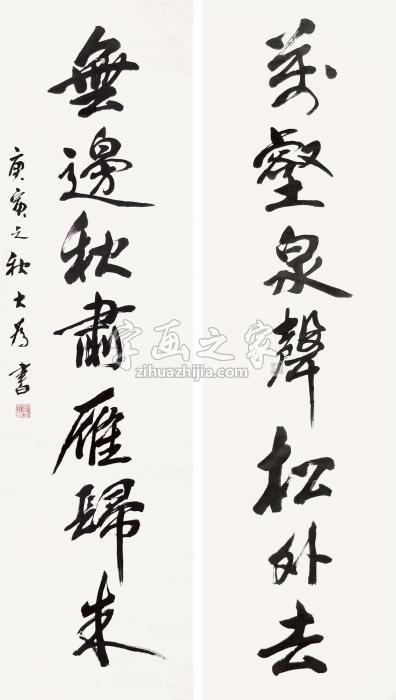 萬壑泉聲松外去
無邊秋肅雁歸来
庚寅之秋大为書
字画之家
zihuazhijia.com